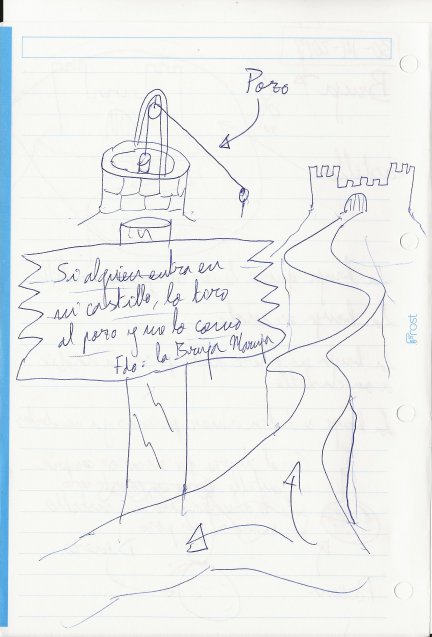 Pozo
Si alguien entra en
mi castillo, lo tiro
al pozo y me lo como
Fdo: la Bruja Maruja
Frost